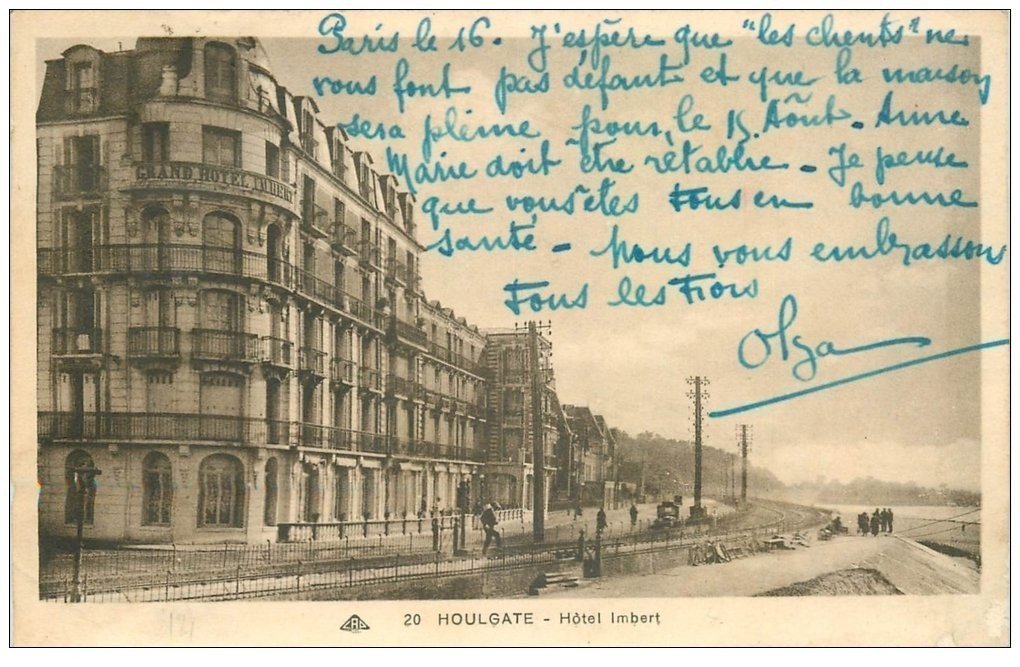 Paris le 16. J'espère que "les clients" ne
vous font pas défaut et que la maison
sera pleine pour le 15 Août. Anne
Marie doit être rétablie - Je pense
que vous êtes tous en bonne
santé - Nous vous embrassons
Tous les Trois
Olga
GRAND HOTEL IMBERT
20 HOULGATE - Hôtel Imbert